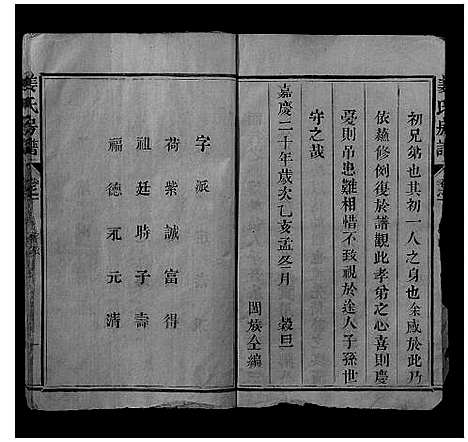 初兄弟也其初一人之身也余咸於此乃
依蘓修例復於譜觀此孝弟之心喜則慶
憂則吊患難相惜不致視於途人子孫世
守之哉
嘉慶二十年歲次乙亥孟冬月 穀旦
闔族仝編
字派
荷紫誠富得
祖廷時子壽
福德永元清
姜氏房譜